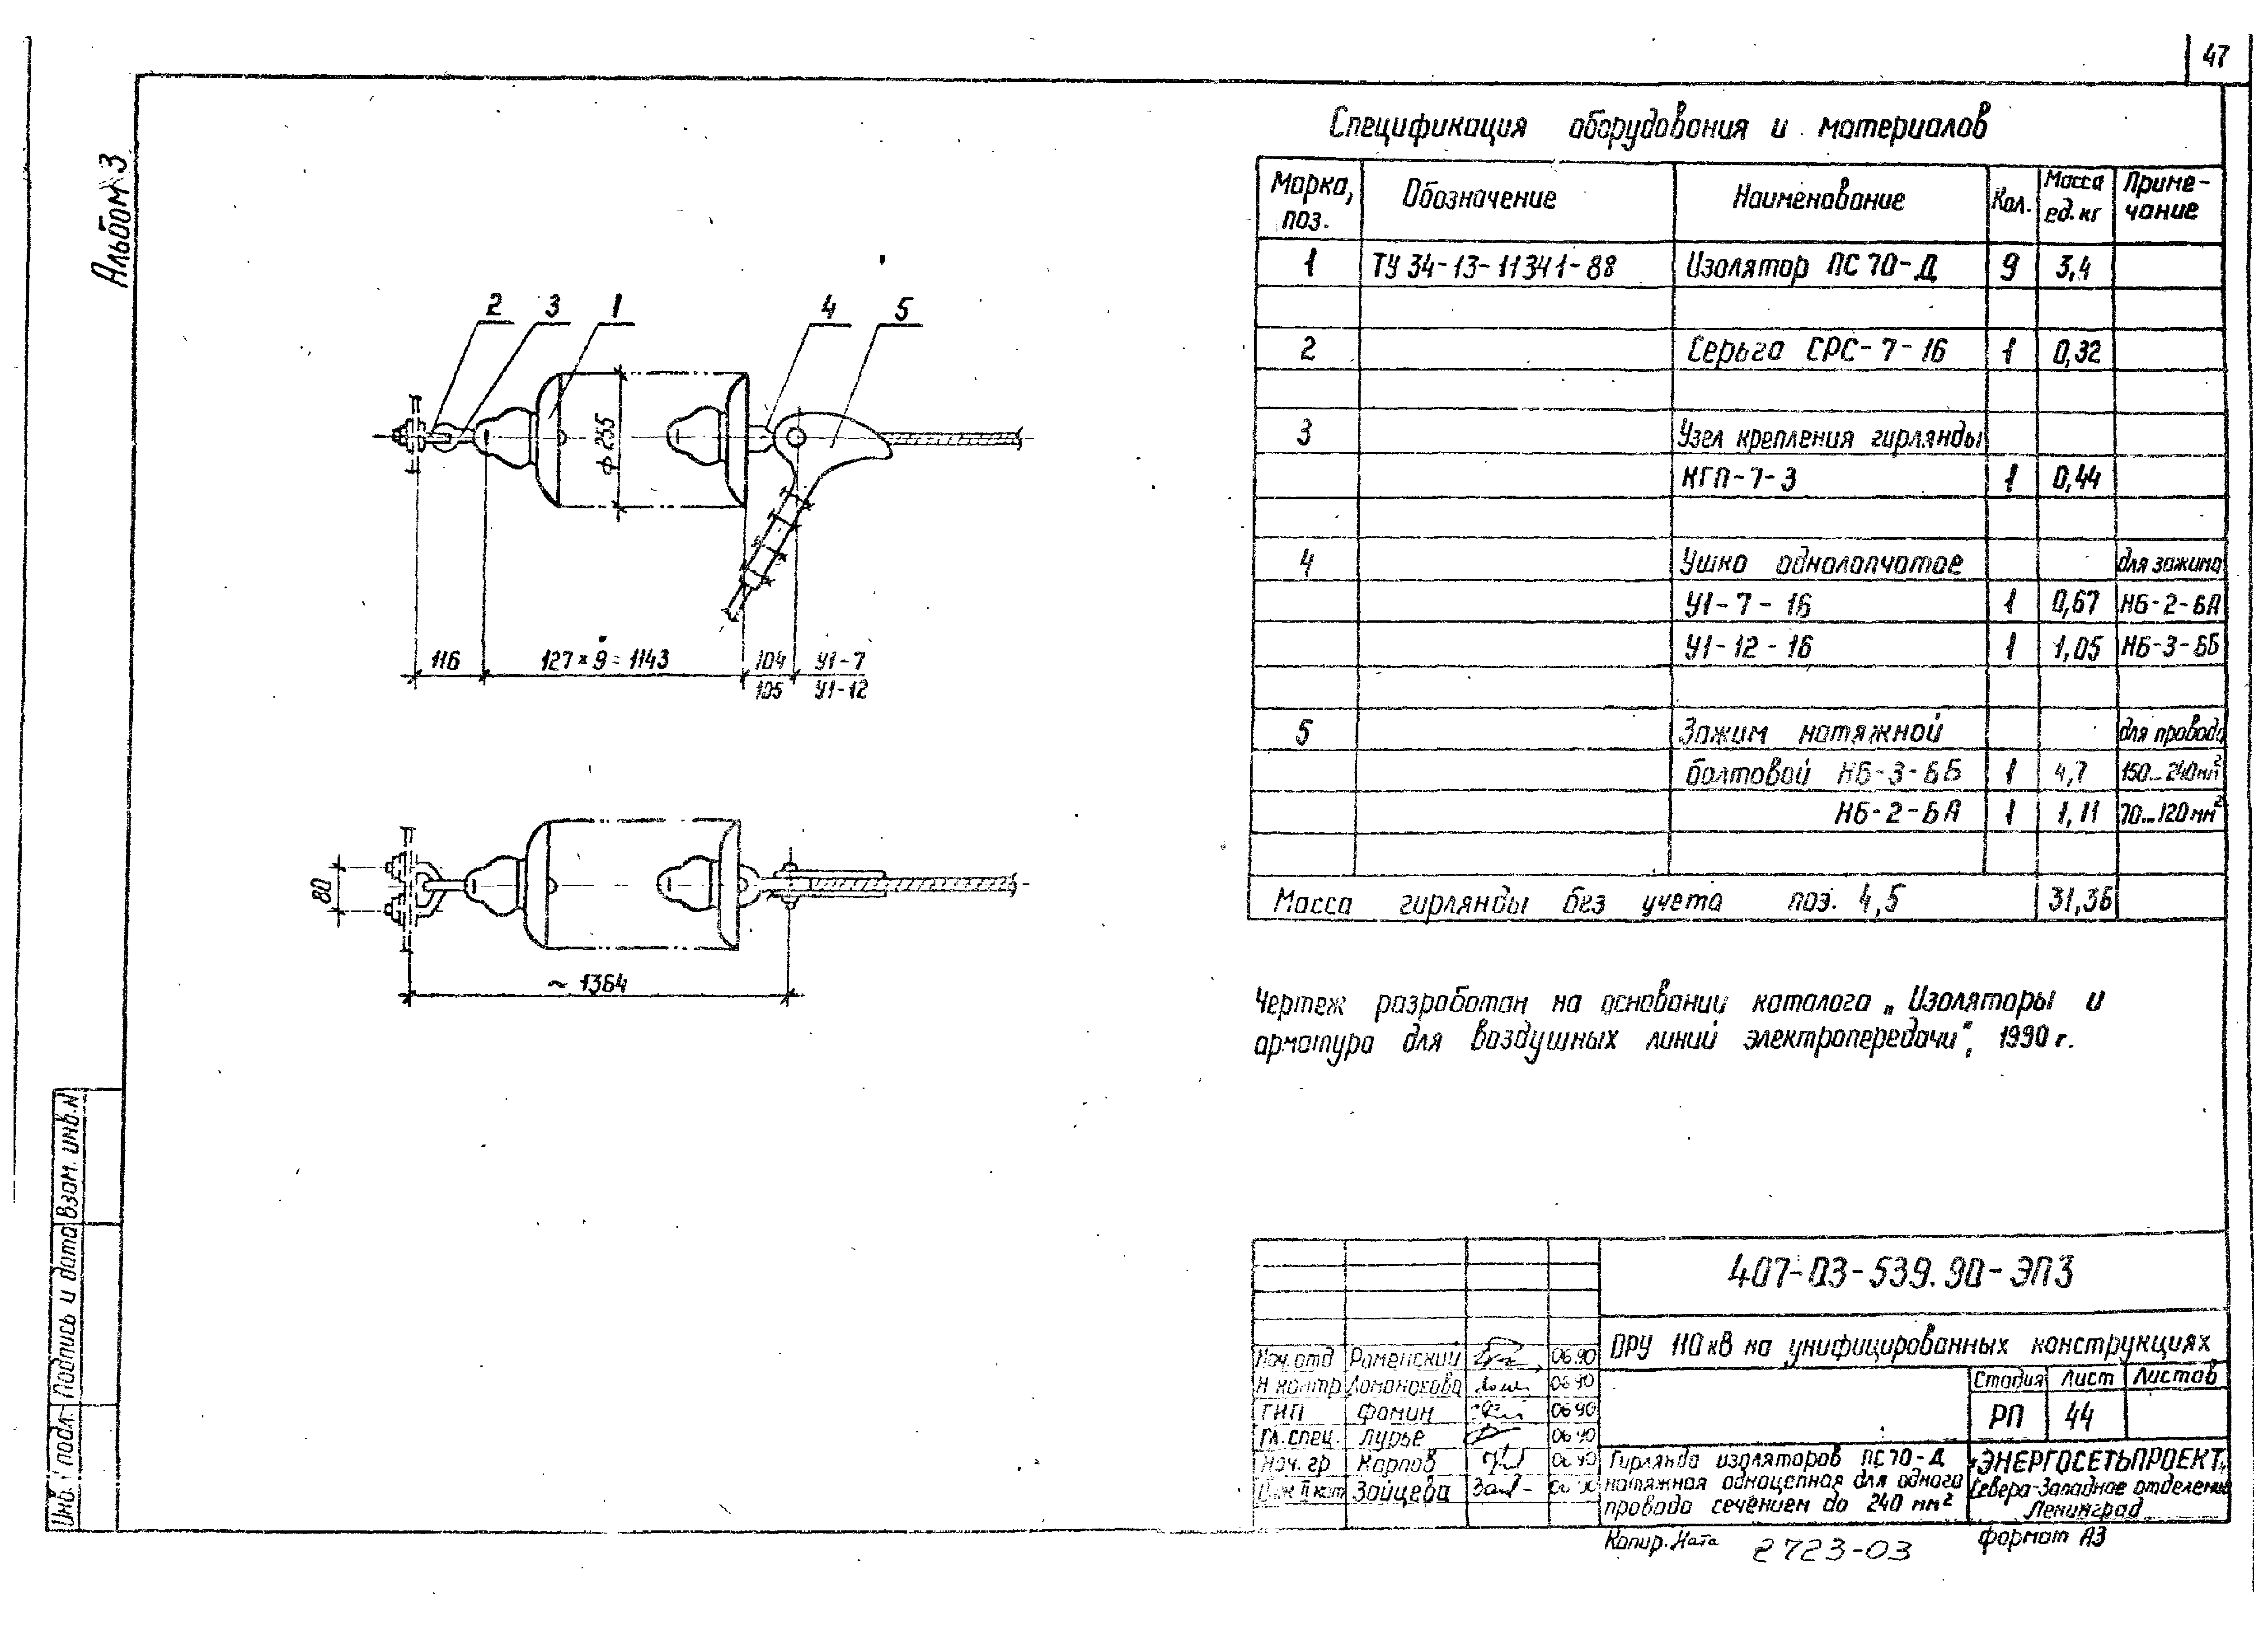 47
Альбом 3
Спецификация оборудования и материалов
Марка, поз. Обозначение Наименование Кол. Масса ед. кг Приме-чание
1 ТУ 34-13-11341-88 Изолятор ПС 70-Д 9 3,4
2 Серьга СРС-7-16 1 0,32
3 Узел крепления гирлянды
КГП-7-3 1 0,44
4 Ушко однолапчатое для зажима
У1-7-16 1 0,67 НБ-2-6А
У1-12-16 1 1,05 НБ-3-6Б
5 Зажим натяжной для провода
болтовой НБ-3-6Б 1 4,7 150...240мм²
НБ-2-6А 1 1,11 70...120мм²
Масса гирлянды без учета поз. 4,5 31,36
2 3 1 4 5
ф 255
116 127×9=1143 104 У1-7
105 У1-12
80
~ 1364
Чертеж разработан на основании каталога „Изоляторы и
арматура для воздушных линий электропередачи", 1990 г.
Взам. инв. N
Подпись и дата
Инв. N подл.
407-03-539.90-ЭП3
ОРУ 110 кВ на унифицированных конструкциях
Нач. отд Роменский 06.90
Н контр Ломоносова 06 90
ГИП Фомин 06 90
Гл. спец. Лурье 06 90
Нач. гр Карпов 06 90
Инж II кат Зайцева
Стадия Лист Листов
РП 44
Гирлянда изоляторов ПС70-Д
натяжная одноцепная для одного
провода сечением до 240 мм²
"ЭНЕРГОСЕТЬПРОЕКТ"
Северо-Западное отделение
Ленинград
Копир. Ната 2723-03 формат А3